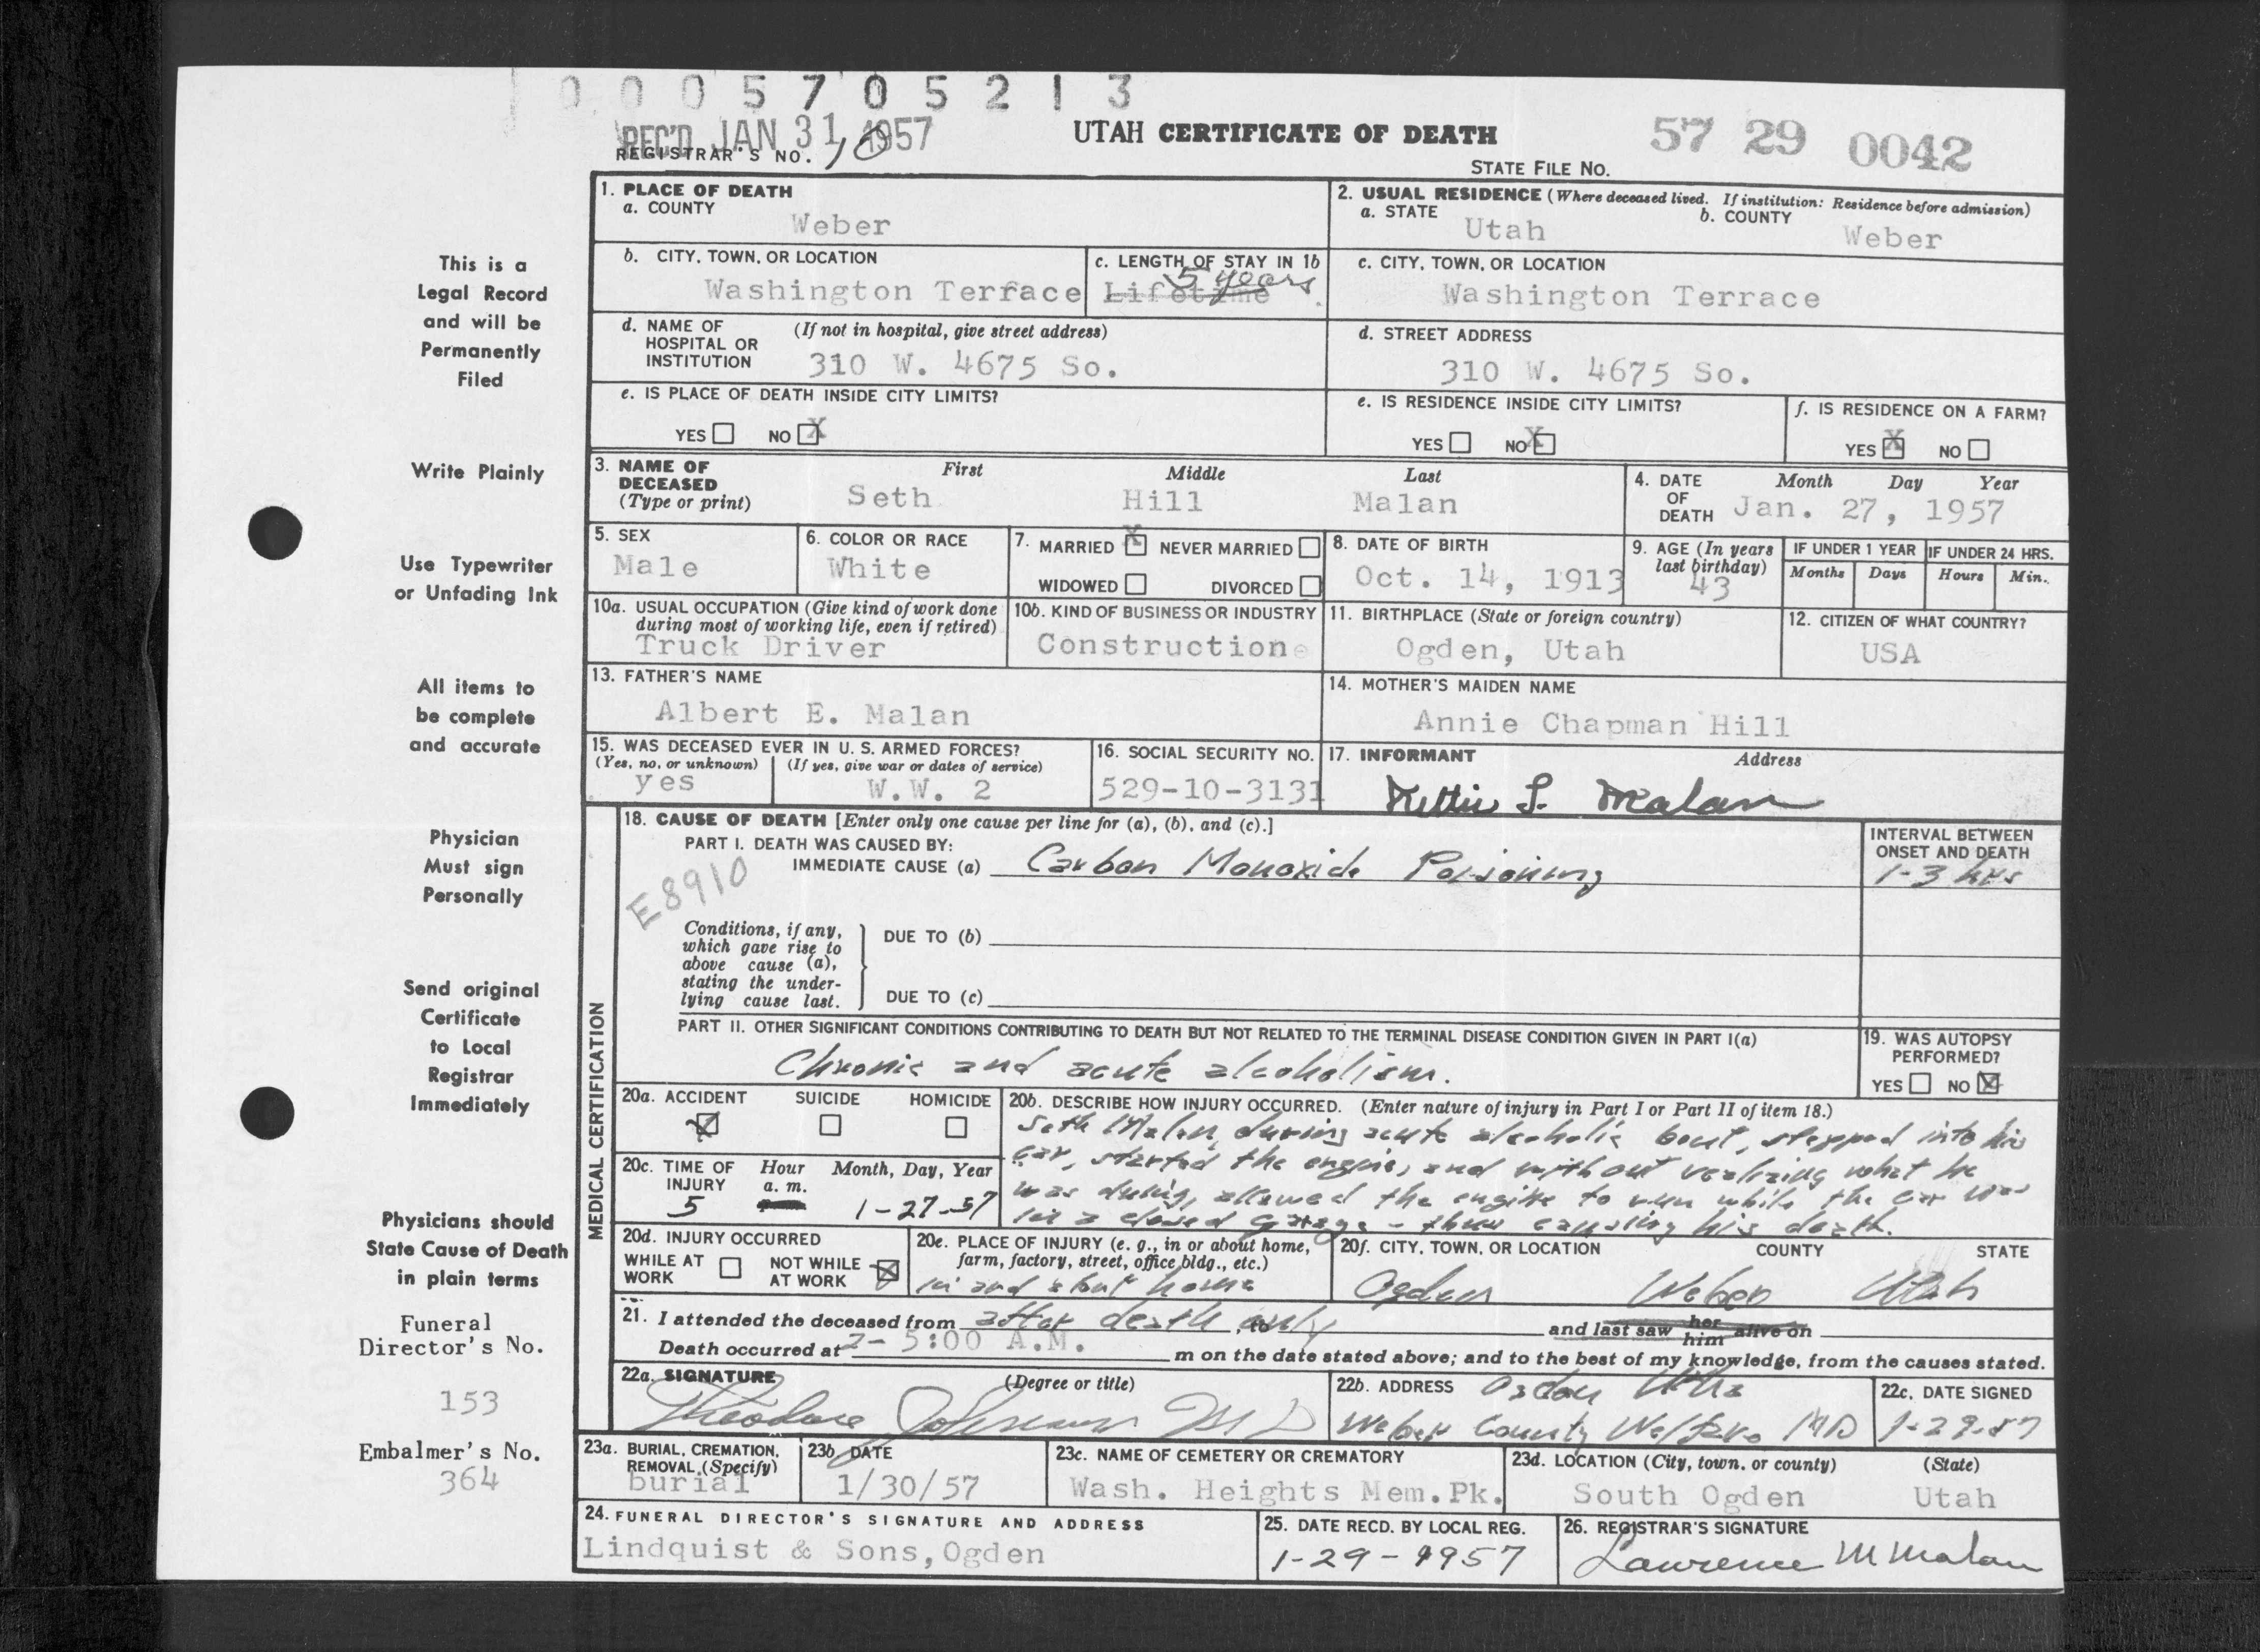 0005705213
REC'D JAN 31 1957
UTAH CERTIFICATE OF DEATH
57 29 0042
REGISTRAR'S NO. 10
STATE FILE NO.
1. PLACE OF DEATH
a. COUNTY
Weber
2. USUAL RESIDENCE (Where deceased lived. If institution: Residence before admission)
a. STATE
Utah
b. COUNTY
Weber
b. CITY, TOWN, OR LOCATION
Washington Terrace
c. LENGTH OF STAY IN 1b
5 years
Lifetime
c. CITY, TOWN, OR LOCATION
Washington Terrace
d. NAME OF HOSPITAL OR INSTITUTION
(If not in hospital, give street address)
310 W. 4675 So.
d. STREET ADDRESS
310 W. 4675 So.
e. IS PLACE OF DEATH INSIDE CITY LIMITS?
YES NO X
e. IS RESIDENCE INSIDE CITY LIMITS?
YES NO X
f. IS RESIDENCE ON A FARM?
YES X NO
3. NAME OF DECEASED (Type or print)
First Middle Last
Seth Hill Malan
4. DATE OF DEATH
Month Day Year
Jan. 27, 1957
5. SEX
Male
6. COLOR OR RACE
White
7. MARRIED X NEVER MARRIED
WIDOWED DIVORCED
8. DATE OF BIRTH
Oct. 14, 1913
9. AGE (In years last birthday)
43
IF UNDER 1 YEAR
Months Days
IF UNDER 24 HRS.
Hours Min.
10a. USUAL OCCUPATION (Give kind of work done during most of working life, even if retired)
Truck Driver
10b. KIND OF BUSINESS OR INDUSTRY
Construction
11. BIRTHPLACE (State or foreign country)
Ogden, Utah
12. CITIZEN OF WHAT COUNTRY?
USA
13. FATHER'S NAME
Albert E. Malan
14. MOTHER'S MAIDEN NAME
Annie Chapman Hill
15. WAS DECEASED EVER IN U. S. ARMED FORCES?
(Yes, no, or unknown) (If yes, give war or dates of service)
yes W.W. 2
16. SOCIAL SECURITY NO.
529-10-3131
17. INFORMANT Address
Nettie S. Malan
MEDICAL CERTIFICATION
18. CAUSE OF DEATH [Enter only one cause per line for (a), (b), and (c).]
PART I. DEATH WAS CAUSED BY:
IMMEDIATE CAUSE (a) Carbon Monoxide Poisoning
INTERVAL BETWEEN ONSET AND DEATH
1-3 hrs
E8910
Conditions, if any, which gave rise to above cause (a), stating the underlying cause last.
DUE TO (b)
DUE TO (c)
PART II. OTHER SIGNIFICANT CONDITIONS CONTRIBUTING TO DEATH BUT NOT RELATED TO THE TERMINAL DISEASE CONDITION GIVEN IN PART I(a)
Chronic and acute alcoholism.
19. WAS AUTOPSY PERFORMED?
YES NO X
20a. ACCIDENT X SUICIDE HOMICIDE
20b. DESCRIBE HOW INJURY OCCURRED. (Enter nature of injury in Part I or Part II of item 18.)
Seth Malan, during acute alcoholic bout, stepped into his
car, started the engine, and without realizing what he
was doing, allowed the engine to run while the car was
in a closed garage - thus causing his death.
20c. TIME OF INJURY
Hour Month, Day, Year
a. m.
5 1-27-57
20d. INJURY OCCURRED
WHILE AT WORK NOT WHILE AT WORK X
20e. PLACE OF INJURY (e. g., in or about home, farm, factory, street, office bldg., etc.)
in and about home
20f. CITY, TOWN, OR LOCATION COUNTY STATE
Ogden Weber Utah
21. I attended the deceased from after death only, to and last saw her him alive on
Death occurred at 2- 5:00 A.M. m on the date stated above; and to the best of my knowledge, from the causes stated.
22a. SIGNATURE (Degree or title)
Theodore Johnson MD
22b. ADDRESS Ogden Utah
Weber County Welfare MD
22c. DATE SIGNED
1-29-57
23a. BURIAL, CREMATION, REMOVAL (Specify)
burial
23b. DATE
1/30/57
23c. NAME OF CEMETERY OR CREMATORY
Wash. Heights Mem.Pk.
23d. LOCATION (City, town, or county) (State)
South Ogden Utah
24. FUNERAL DIRECTOR'S SIGNATURE AND ADDRESS
Lindquist & Sons, Ogden
25. DATE RECD. BY LOCAL REG.
1-29-1957
26. REGISTRAR'S SIGNATURE
Lawrence M Malan
This is a
Legal Record
and will be
Permanently
Filed
Write Plainly
Use Typewriter
or Unfading Ink
All items to
be complete
and accurate
Physician
Must sign
Personally
Send original
Certificate
to Local
Registrar
Immediately
Physicians should
State Cause of Death
in plain terms
Funeral
Director's No.
153
Embalmer's No.
364